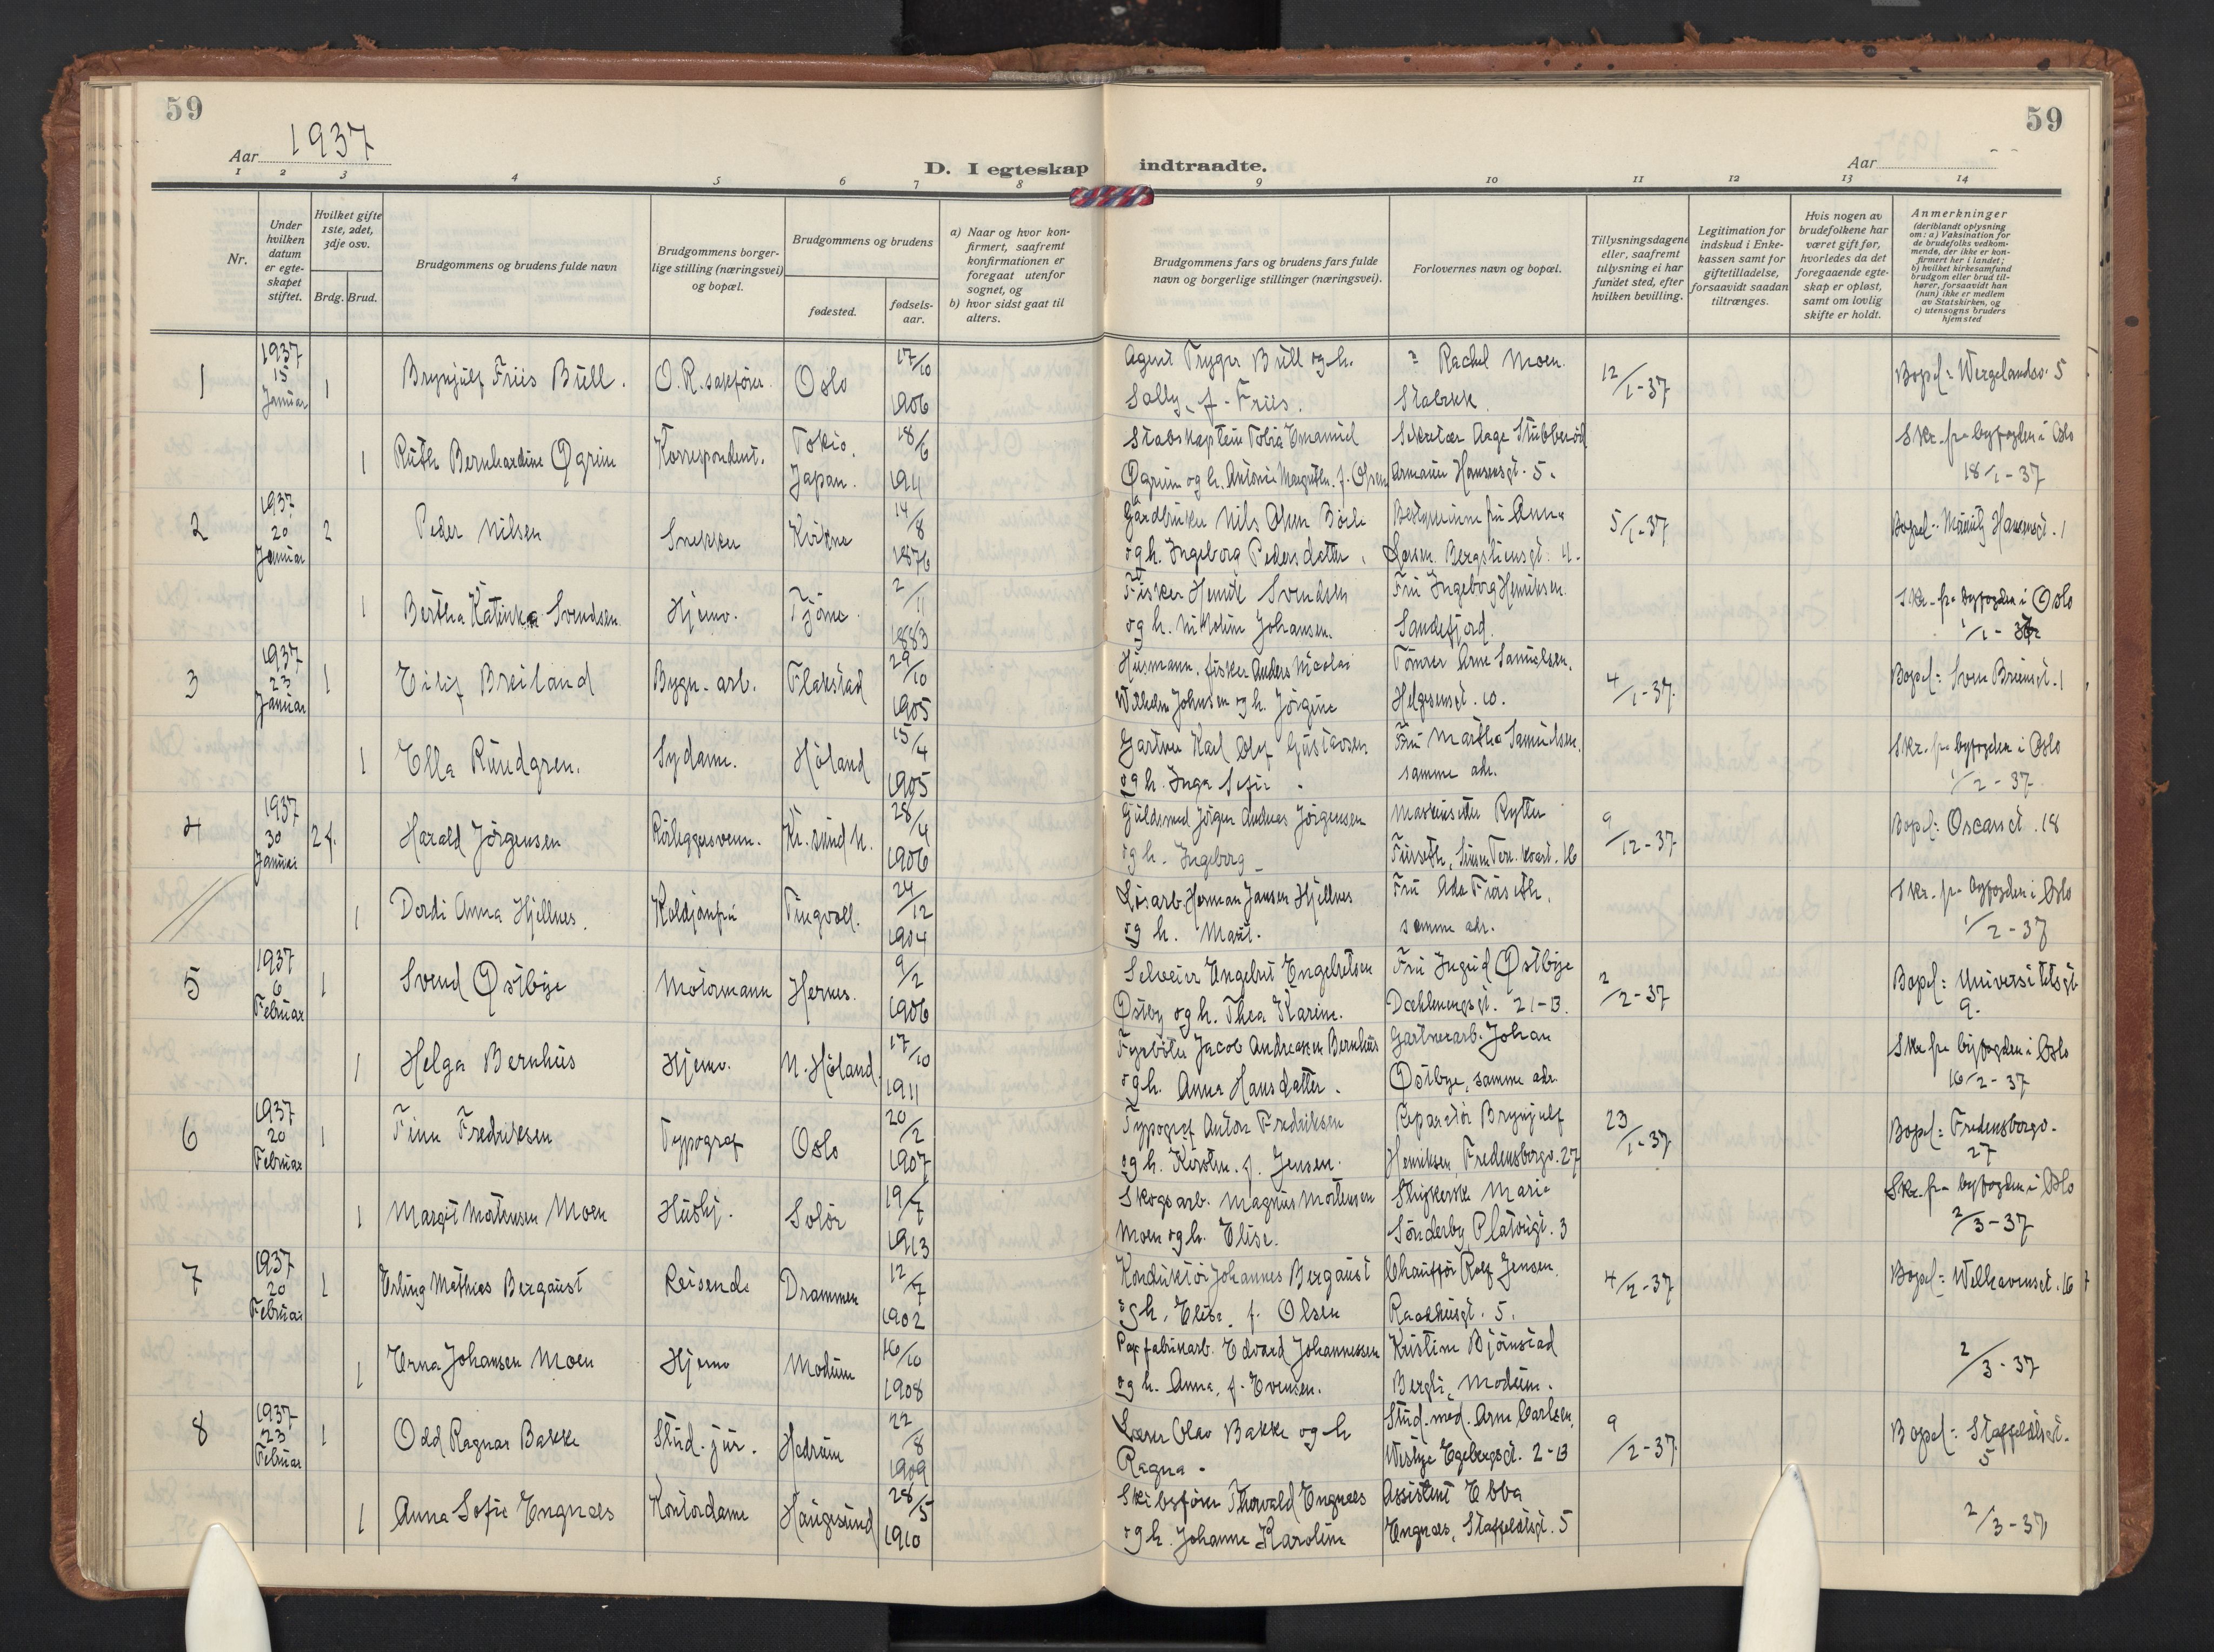 59
59
Aar 1937
D. I egteskap indtraadte.
Aar
1 2 3 4 5 6 7 8 9 10 11 12 13 14
Nr.
Under hvilken datum er egteskapet stiftet.
Hvilket gifte 1ste, 2det, 3dje osv.
Brdg. Brud.
Brudgommens og brudens fulde navn
Brudgommens borgerlige stilling (næringsvei) og bopæl.
Brudgommens og brudens
fødested.
fødselsaar.
a) Naar og hvor konfirmert, saafremt konfirmationen er foregaat utenfor sognet, og
b) hvor sidst gaat til alters.
Brudgommens fars og brudens fars fulde navn og borgerlige stillinger (næringsvei).
Forlovernes navn og bopæl.
Tillysningsdagene eller, saafremt tillysning ei har fundet sted, efter hvilken bevilling.
Legitimation for indskud i Enkekassen samt for giftetilladelse, forsaavidt saadan tiltrænges.
Hvis nogen av brudefolkene har været gift før, hvorledes da det foregaaende egteskap er opløst, samt om lovlig skifte er holdt.
Anmerkninger (deriblandt oplysning om: a) Vaksination for de brudefolks vedkommende, der ikke er konfirmert her i landet; b) hvilket kirkesamfund brudgom eller brud tilhører, forsaavidt han (hun) ikke er medlem av Statskirken, og c) utensogns bruders hjemsted
1 1937 15 Januar 1 Brynjulf Friis Bull. O.R.sakfører. Oslo 17/10 1906
Agent Trygve Bull og h. Sally, f. Friis.
? Rachel Moen. Stabekk.
12/1-37
Bopel: Wergelandsv. 5
1 Ruth Bernhardine Øgrim Korrespondent. Tokio, Japan. 18/6 1911
Stabskaptein Tobia Emanuel Øgrim og h. Antonie Margrethe. f. Olsen
Sekretær Aage Stubberød Armauer Hansensgt. 5.
Skr. fra byfogden i Oslo 18/1-37
2 1937 20 Januar 2 Peder Nilsen Snekker Kvikne 14/8 1876
Gårdbruker Nils Olsen og h. Ingeborg Pedersdatter.
Bestyrerinne fru Anna Larsen Bergsliensgt. 4.
5/1-37
Bopel: Mauritz Hansensgt. 1
1 Bertha Katinka Svendsen. Hjemv. Tjöme. 2/11 1883
Fisker Henrik Svendsen og h. Nikoline Johansen.
Fru Ingeborg Henriksen. Sandefjord.
Skr. fra byfogden i Oslo 1/1-37
3 1937 23 Januar 1 Eilif Breiland Bygn.-arb. Flakstad 29/10 1905
Husmann, fisker Anders Nicolai Wilhelm Johnsen og h. Jörgine
Tömrer Arne Samuelsen, Helgesensgt. 10.
4/1-37.
Bopel: Sven Bruunsgt. 1
1 Ella Rundgren. Sydame. Höland 15/4 1905
Gartner Karl Olof Gustavsen og h. Inga Sofie.
Fru Martha Samuelsen, samme adr.
Skr. fra byfogden i Oslo 1/2-37.
4 1937 30 Januar 2 f. Harald Jörgensen Rörleggersvenn. Kr.sund N. 28/4 1906
Guldsmed Jörgen Andreas Jörgensen og h. Ingeborg
Maskinsetter Rytter Furseth,
9/12-37
Bopel: Oscarsgt. 18
1 Dordi Anna Hjellnes. Koldjomfru Tingvoll. 24/12 1904
Lösarb. Herman Jansen Hjellnes og h. Marit.
Fru Ada Furseth. samme adr.
Skr. fra byfogden i Oslo 1/2-37
5 1937 6 Februar 1 Svend Østbye Motormann Hernes. 9/2 1906
Selveier Engebret Engebretsen Østby og h. Thea Karine.
Fru Ingrid Østbye Dæhlenengsgt. 21-B.
2/2-37
Bopel: Universitetsgt. 9.
1 Helga Bernhus Hjemv. N. Höland. 17/10 1911
Fyrböter Jacob Andreasen Bernhus og h. Anna Hansdatter.
Gartnerarb. Johan Østbye, samme adr.
Skr. fra byfogden i Oslo 16/2-37
6 1937 20 Februar 1 Finn Fredriksen Typograf Oslo 20/2 1907
Typograf Anton Fredriksen og h. Kirsten. f. Jensen.
Reparatör Brynjulf Henriksen, Fredensborgv. 27
23/1-37
Bopel: Fredensborgv. 27
1 Margit Mortensen Moen Hushj. Solör 19/7 1913
Skogsarb. Magnus Mortensen Moen og h. Elise.
Strykerske Marie Sönderby Platousgt. 3
Skr. fra byfogden i Oslo 2/3-37
7 1937 20 Februar 1 Erling Mathias Bergaust Reisende Drammen 12/7 1902
Konduktör Johannes Bergaust og h. Elise, f. Olsen
Chauffør Rolf Jensen. Raadhusgt. 5.
4/2-37
Bopel: Welhavensgt. 16
1 Erna Johansen Moen Hjemv Modum 16/10 1908
Papfabrikarb. Edvard Johannessen og h. Anna, f. Evensen.
Kristine Björnstad Bergli, Modum.
2/3-37
8 1937 23 Februar 1 Odd Ragnar Bakke Stud. jur. Hedrum 22/8 1909
Lærer Olav Bakke og h Ragna.
Stud. med. Arne Carlsen, Vestye Egebergsgt. 2-B
9/2-37.
Bopel: Staffeldtsgt. 5
1 Anna Sofie Engnæs Kontordame Haugesund 28/5 1910
Skibsfører Thorvald Engnæs og h. Johanne Karoline
Assistent Ebba Engnæs, Staffeldtsgt. 5
2/3-37